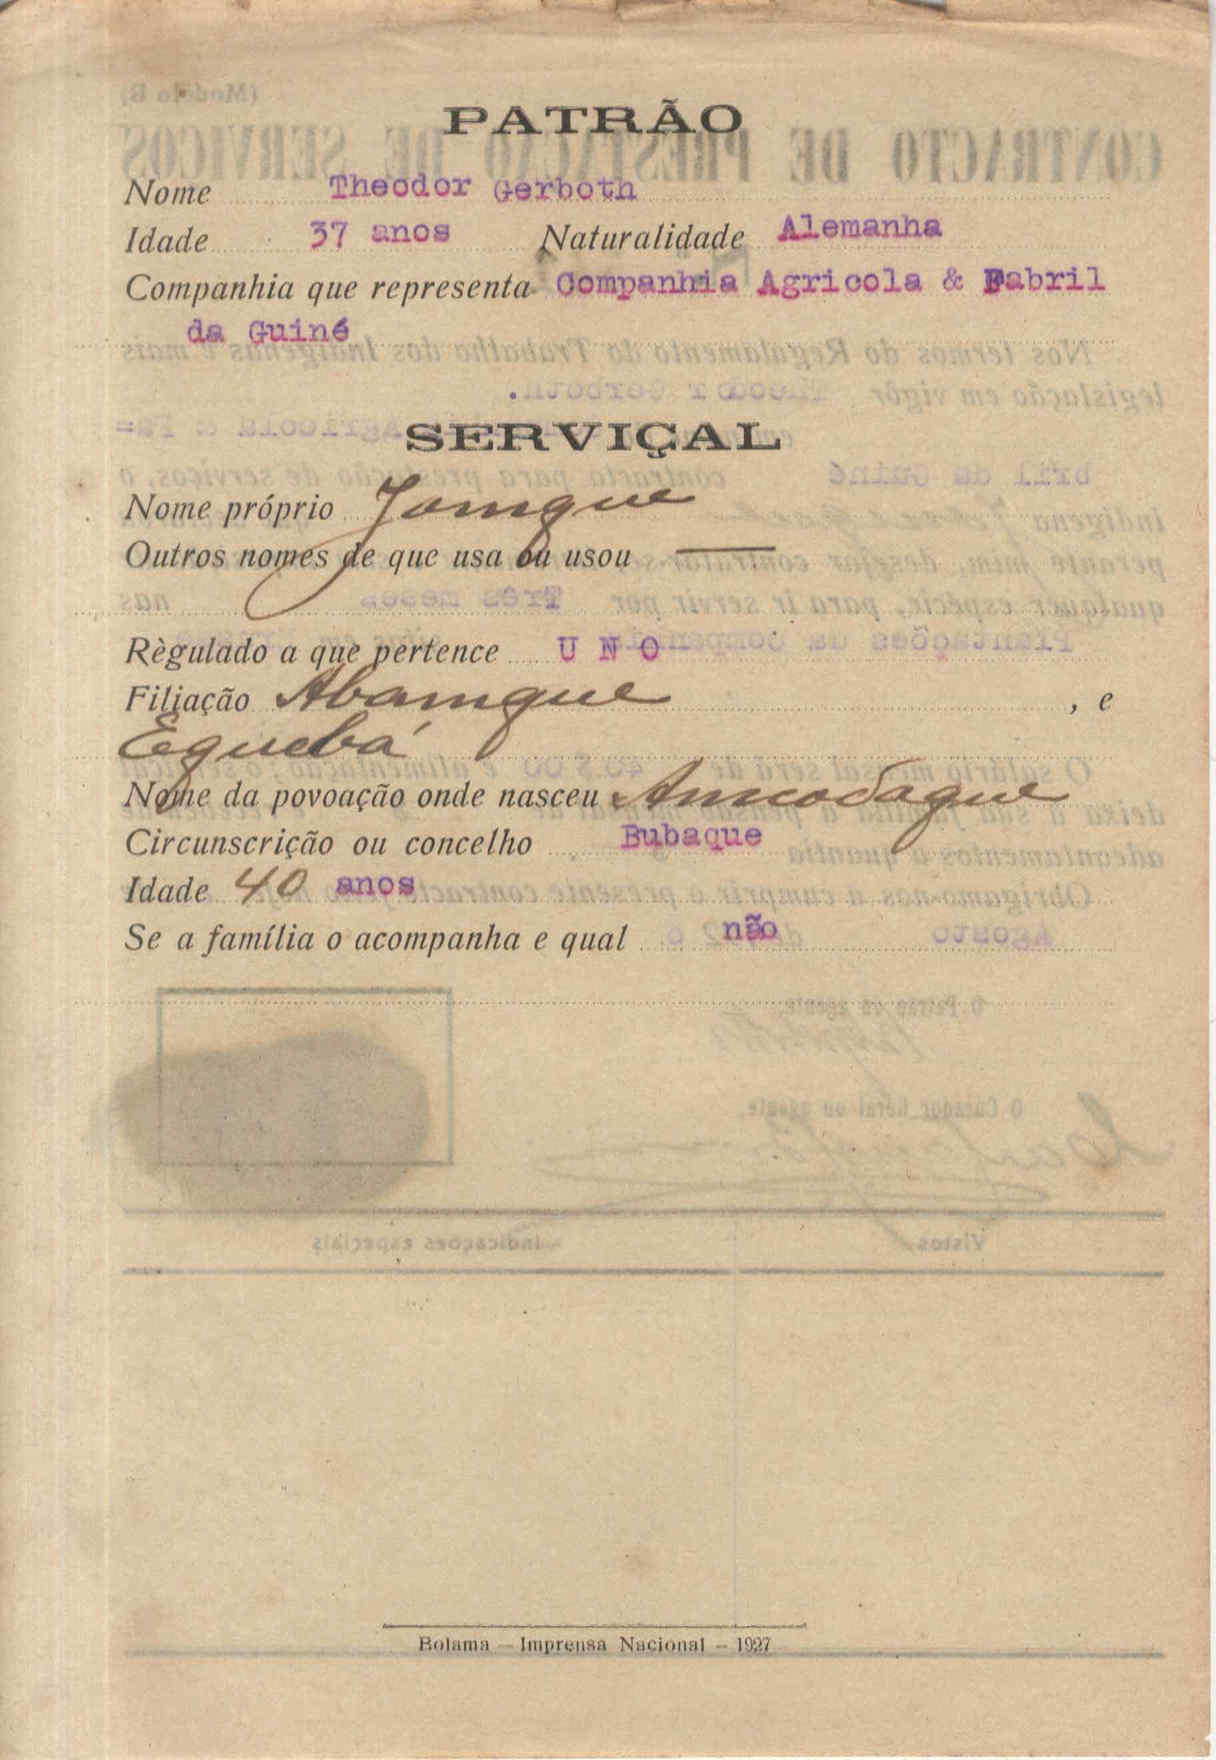 PATRÃO
Nome Theodor Gerboth
Idade 37 anos Naturalidade Alemanha
Companhia que representa Companhia Agricola & Fabril
da Guiné
SERVIÇAL
Nome próprio
Outros nomes de que usa ou usou —
Règulado a que pertence U N O
Filiação Abamque, e
Equebá
Nome da povoação onde nasceu
Circunscrição ou concelho Bubaque
Idade 40 anos
Se a família o acompanha e qual não
Bolama — Imprensa Nacional — 1927